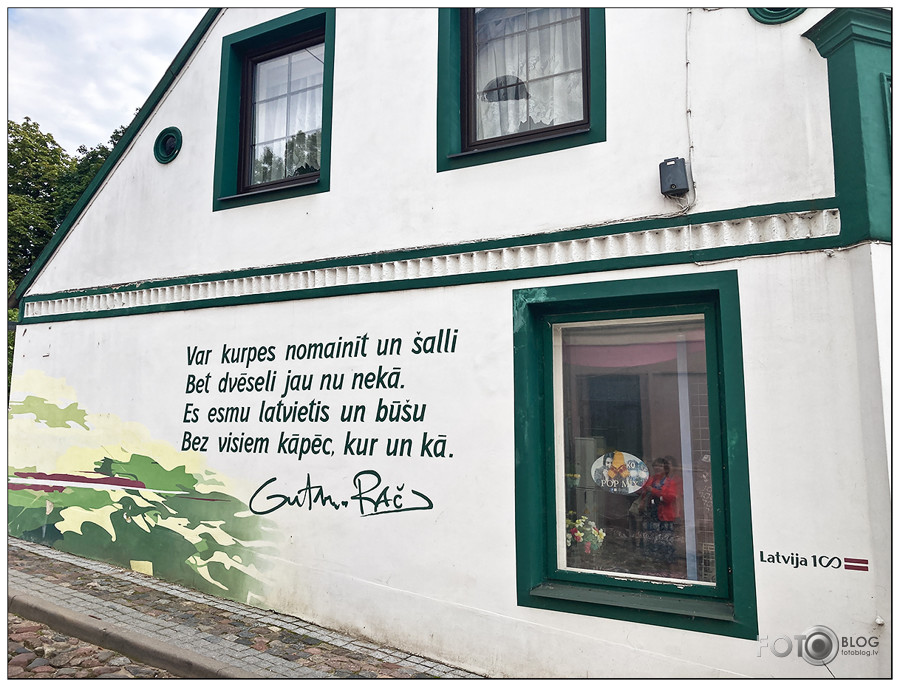 Var kurpes nomainīt un šalli
Bet dvēseli jau nu nekā.
Es esmu latvietis un būšu
Bez visiem kāpēc, kur un kā.
Gutm.. Rač
POP MIX
Latvija 100
FOTO BLOG
fotoblog.lv